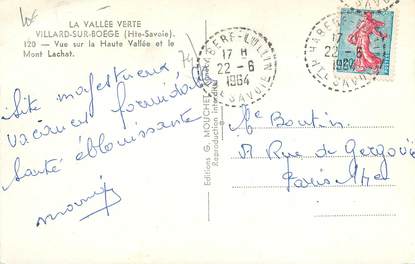 LA VALLÉE VERTE
VILLARD-SUR-BOËGE (Hte-Savoie).
120 — Vue sur la Haute Vallée et le
Mont Lachat.
Site majestueux
vacances formidables
Santé éblouissante
Editions G. MOUCHET
Reproduction interdite
HABÈRE-LULLIN
17 H
22-6
1964
Hte SAVOIE
HABÈRE-LULLIN
17 H
22-6
1964
Hte SAVOIE
Boutin
Rue de Gergovie
Paris 14